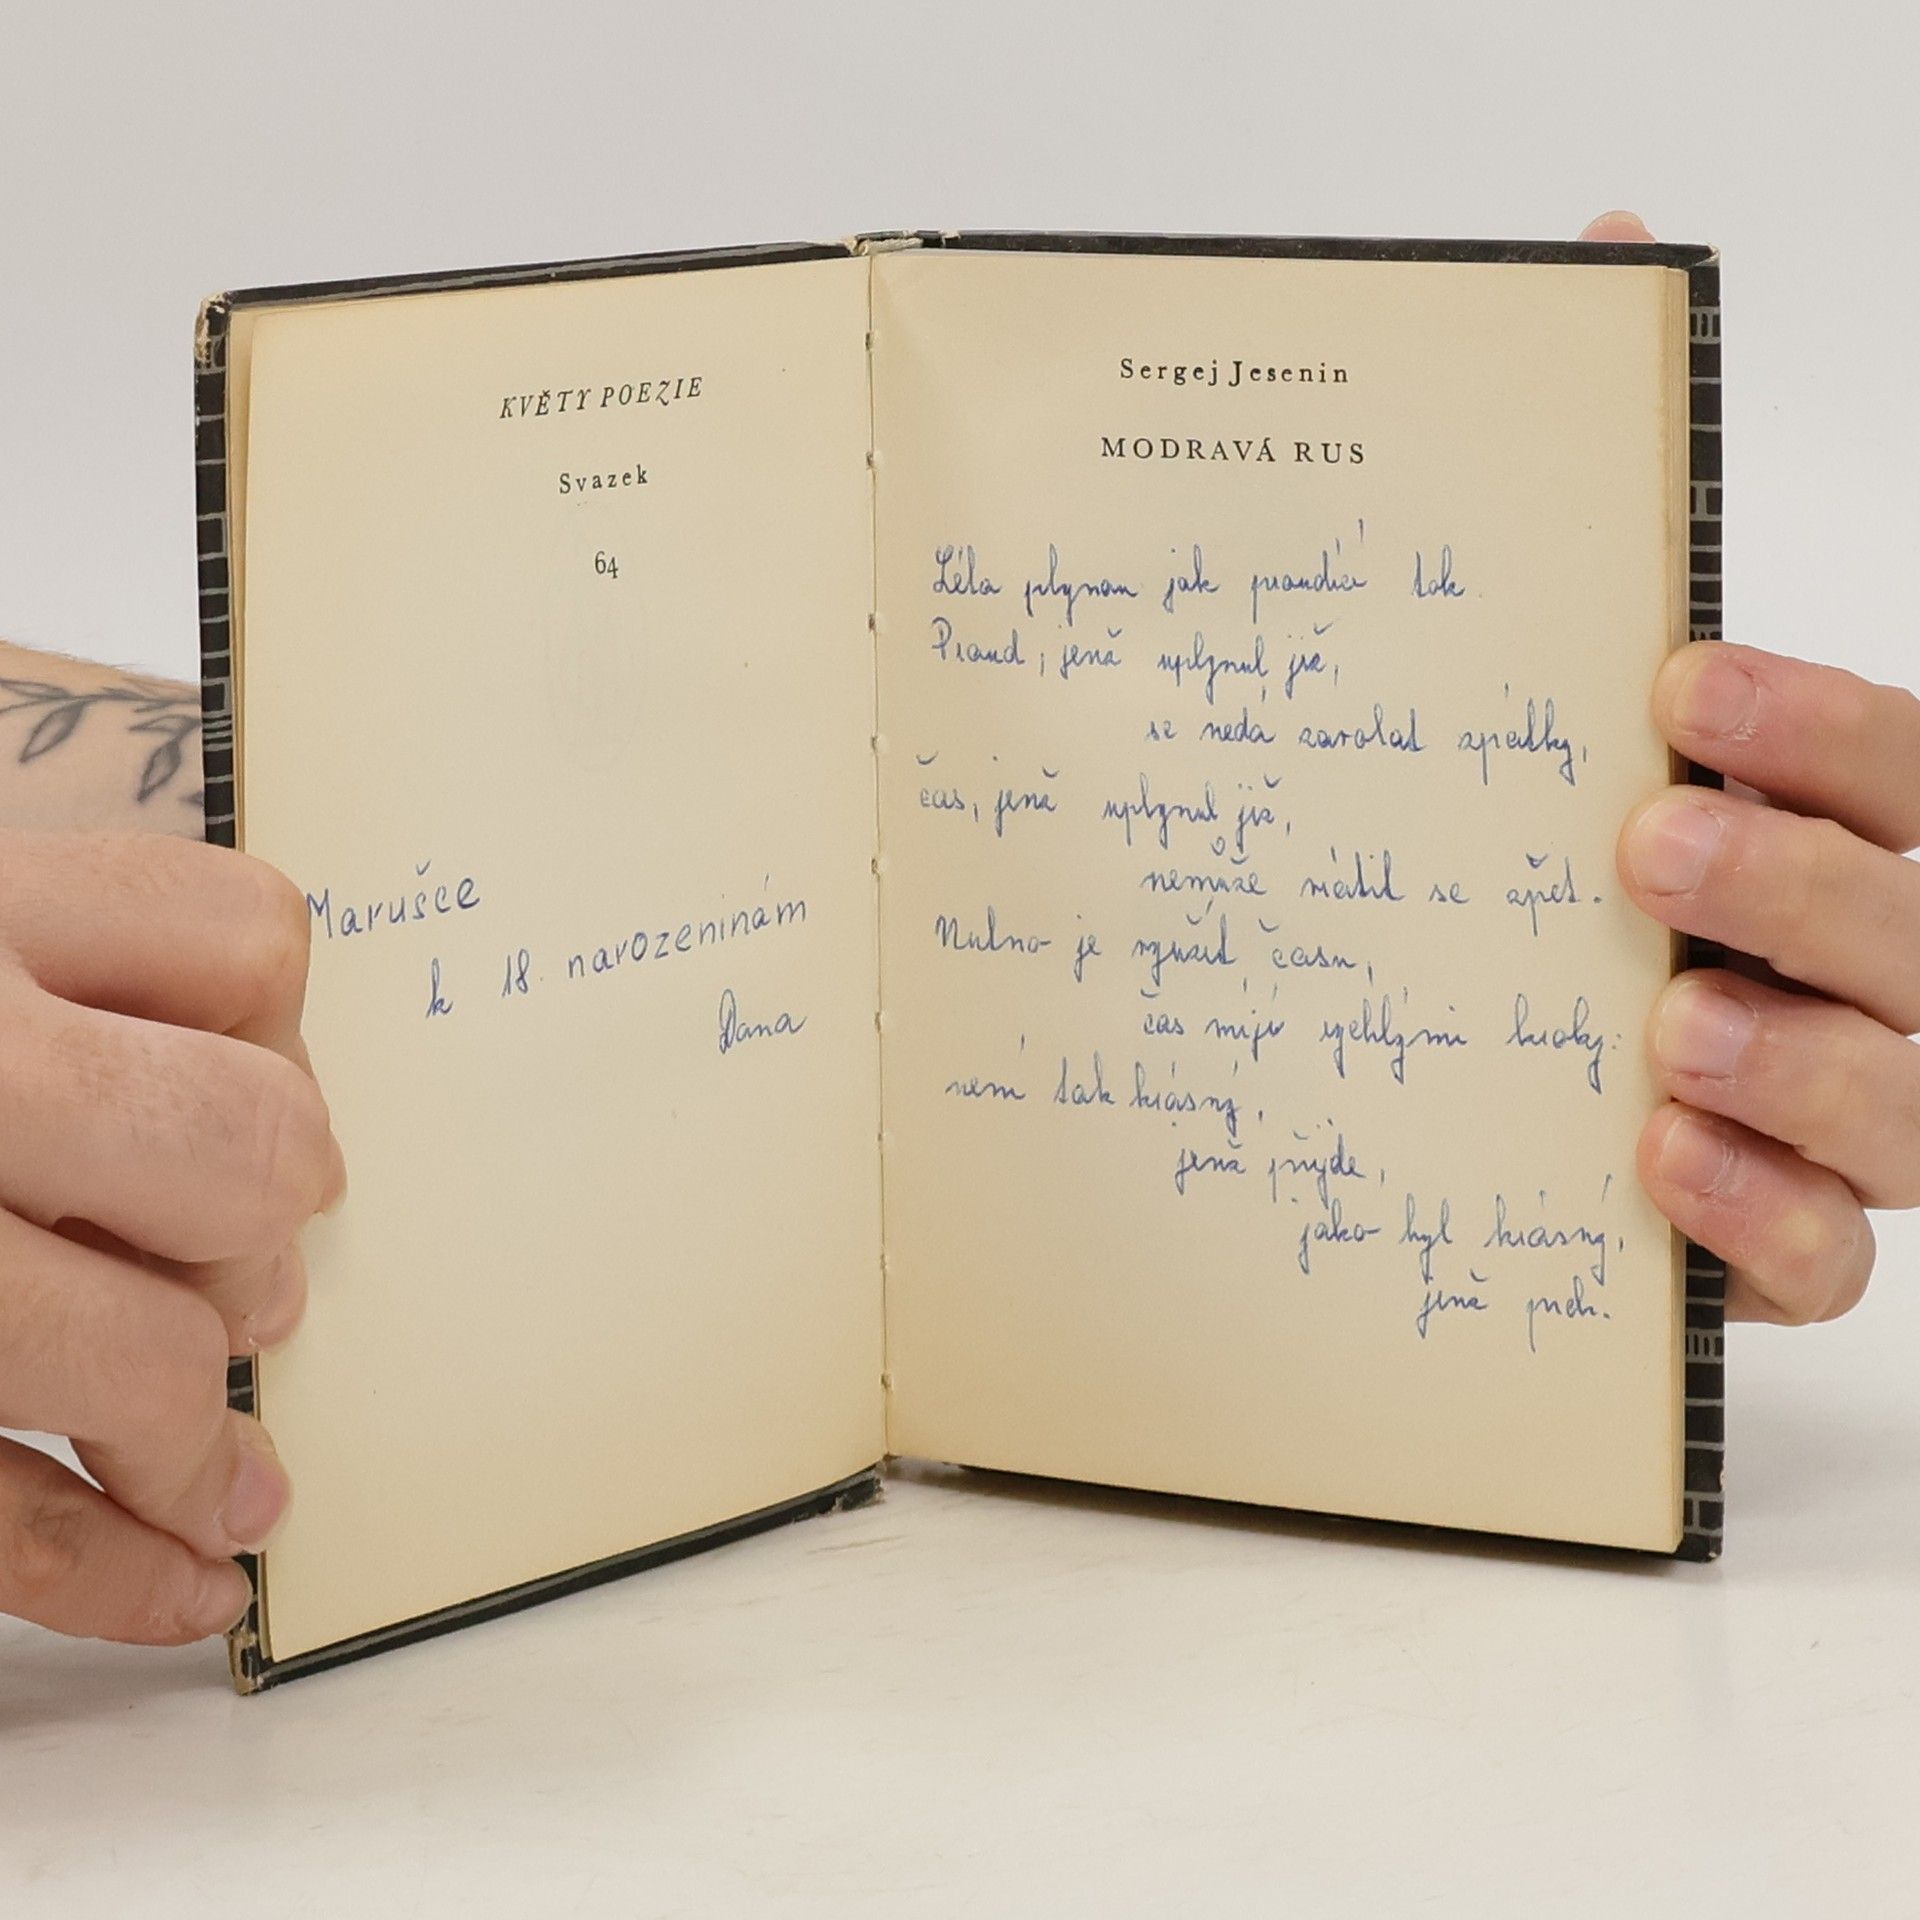 KVĚTY POEZIE
Svazek
64
Marušce
k 18. narozeninám
Dana
Sergej Jesenin
MODRAVÁ RUS
Léta plynou jak proudící tok.
Proud, jenž uplynul již,
se nedá zavolat zpátky,
čas, jenž uplynul již,
nemůže vrátit se zpět.
Nutno je využít času,
čas míjí rychlými kroky:
není tak krásný,
jenž přijde,
jako byl krásný,
jenž prch.